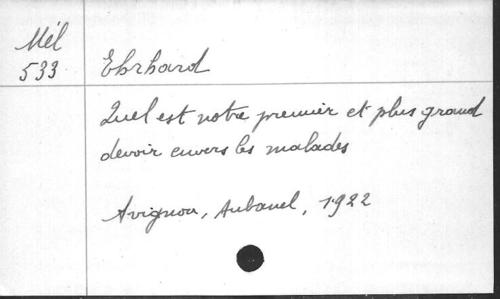 Mél
533
Ehrhard
Quel est notre premier et plus grand
devoir envers les malades
Avignon, Aubanel, 1922